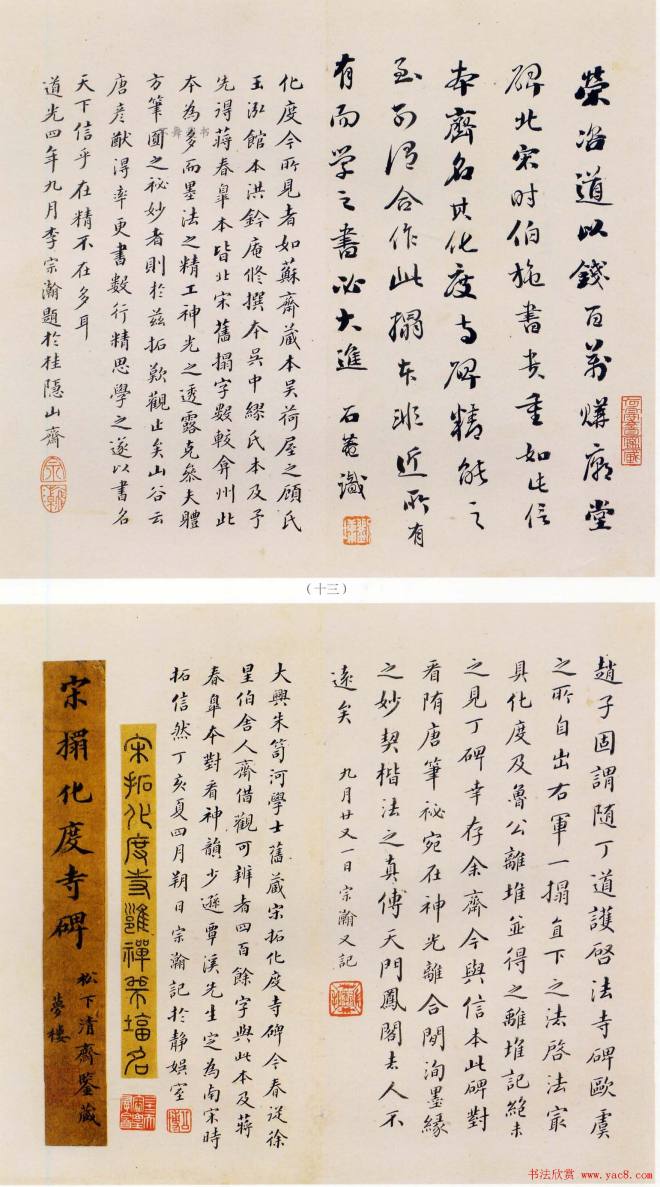 榮咨道以錢百萬購廟堂
碑北宋时伯施書貴重如此信
本齊名其化度寺碑精能之
至前合作此搨本非近所有
有而学之書必大進 石菴識
化度今所見者如蘇齋藏本吴荷屋之顧氏
玉泓館本洪鈐庵修撰本吴中繆氏本及予
先得蔣春臯本皆北宋舊搨字數較弇州此
本為多而墨法之精工神光之透露克叅夫體
方筆圓之祕妙者則於兹拓歎觀止矣山谷云
唐彦猷得率更書數行精思學之遂以書名
天下信乎在精不在多耳
道光四年九月李宗瀚題於桂隱山齋
（十三）
趙子固謂随丁道護啓法寺碑歐虞
之所自出右軍一搨直下之法啓法㝡
具化度及魯公離堆並得之離堆記絶未
之見丁碑幸存余齋今與信本此碑對
看隋唐筆祕宛在神光離合閒洵墨縁
之妙契楷法之真傅天門鳳閣去人不
遠矣 九月廿又一日宗瀚又記
大興朱笥河學士舊藏宋拓化度寺碑今春従徐
星伯舍人齋借觀可辨者四百餘字與此本及蔣
春臯本對看神韻少遜覃溪先生定為南宋時
拓信然丁亥夏四月朔日宗瀚記於静娯室
宋拓化度寺邕禪師塔名
宋搨化度寺碑
松下清齋鑒藏
夢樓
书法欣赏 www.yac8.com